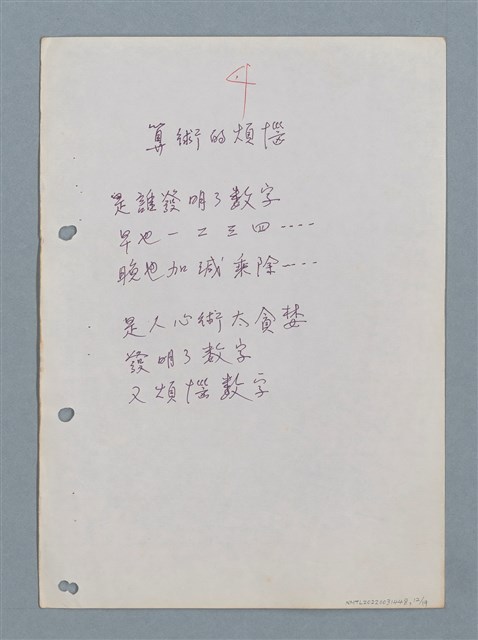 4
算術的煩惱
是誰發明了数字
早也一二三四----
晚也加減乘除----
是人心術太貪婪
發明了数字
又煩惱数字
NMTL20220031448, 12/19